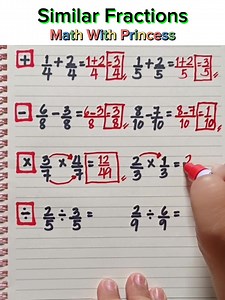 Similar Fractions
Math With Princess
+ 1/4 + 2/4 = 1+2/4 = 3/4 1/5 + 2/5 = 1+2/5 = 3/5
- 6/8 - 3/8 = 6-3/8 = 3/8 8/10 - 7/10 = 8-7/10 = 1/10
× 3/7 × 4/7 = 12/49 2/3 × 1/3 = 2
÷ 2/5 ÷ 3/5 = 2/9 ÷ 6/9 =